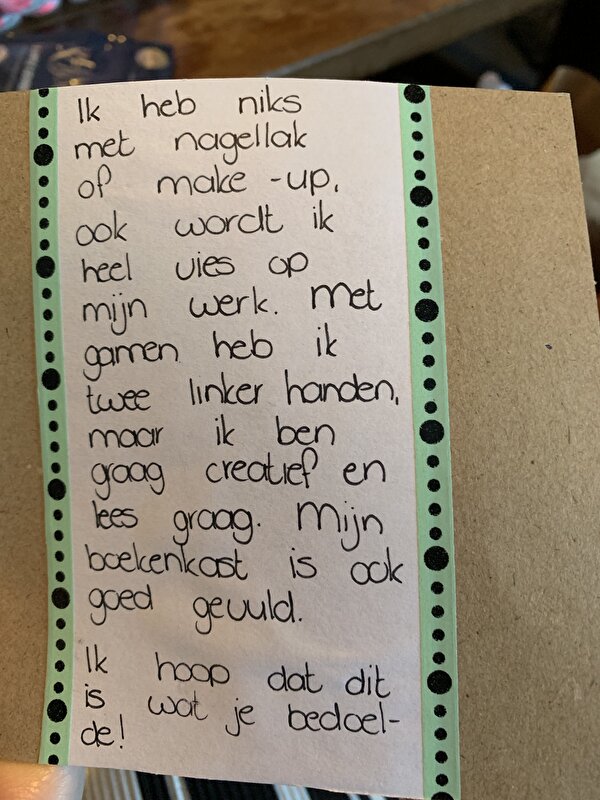 Ik heb niks
met nagellak
of make-up,
ook wordt ik
heel vies op
mijn werk. Met
gamen heb ik
twee linker handen,
maar ik ben
graag creatief en
lees graag. Mijn
boekenkast is ook
goed gevuld.
Ik hoop dat dit
is wat je bedoel-
de!